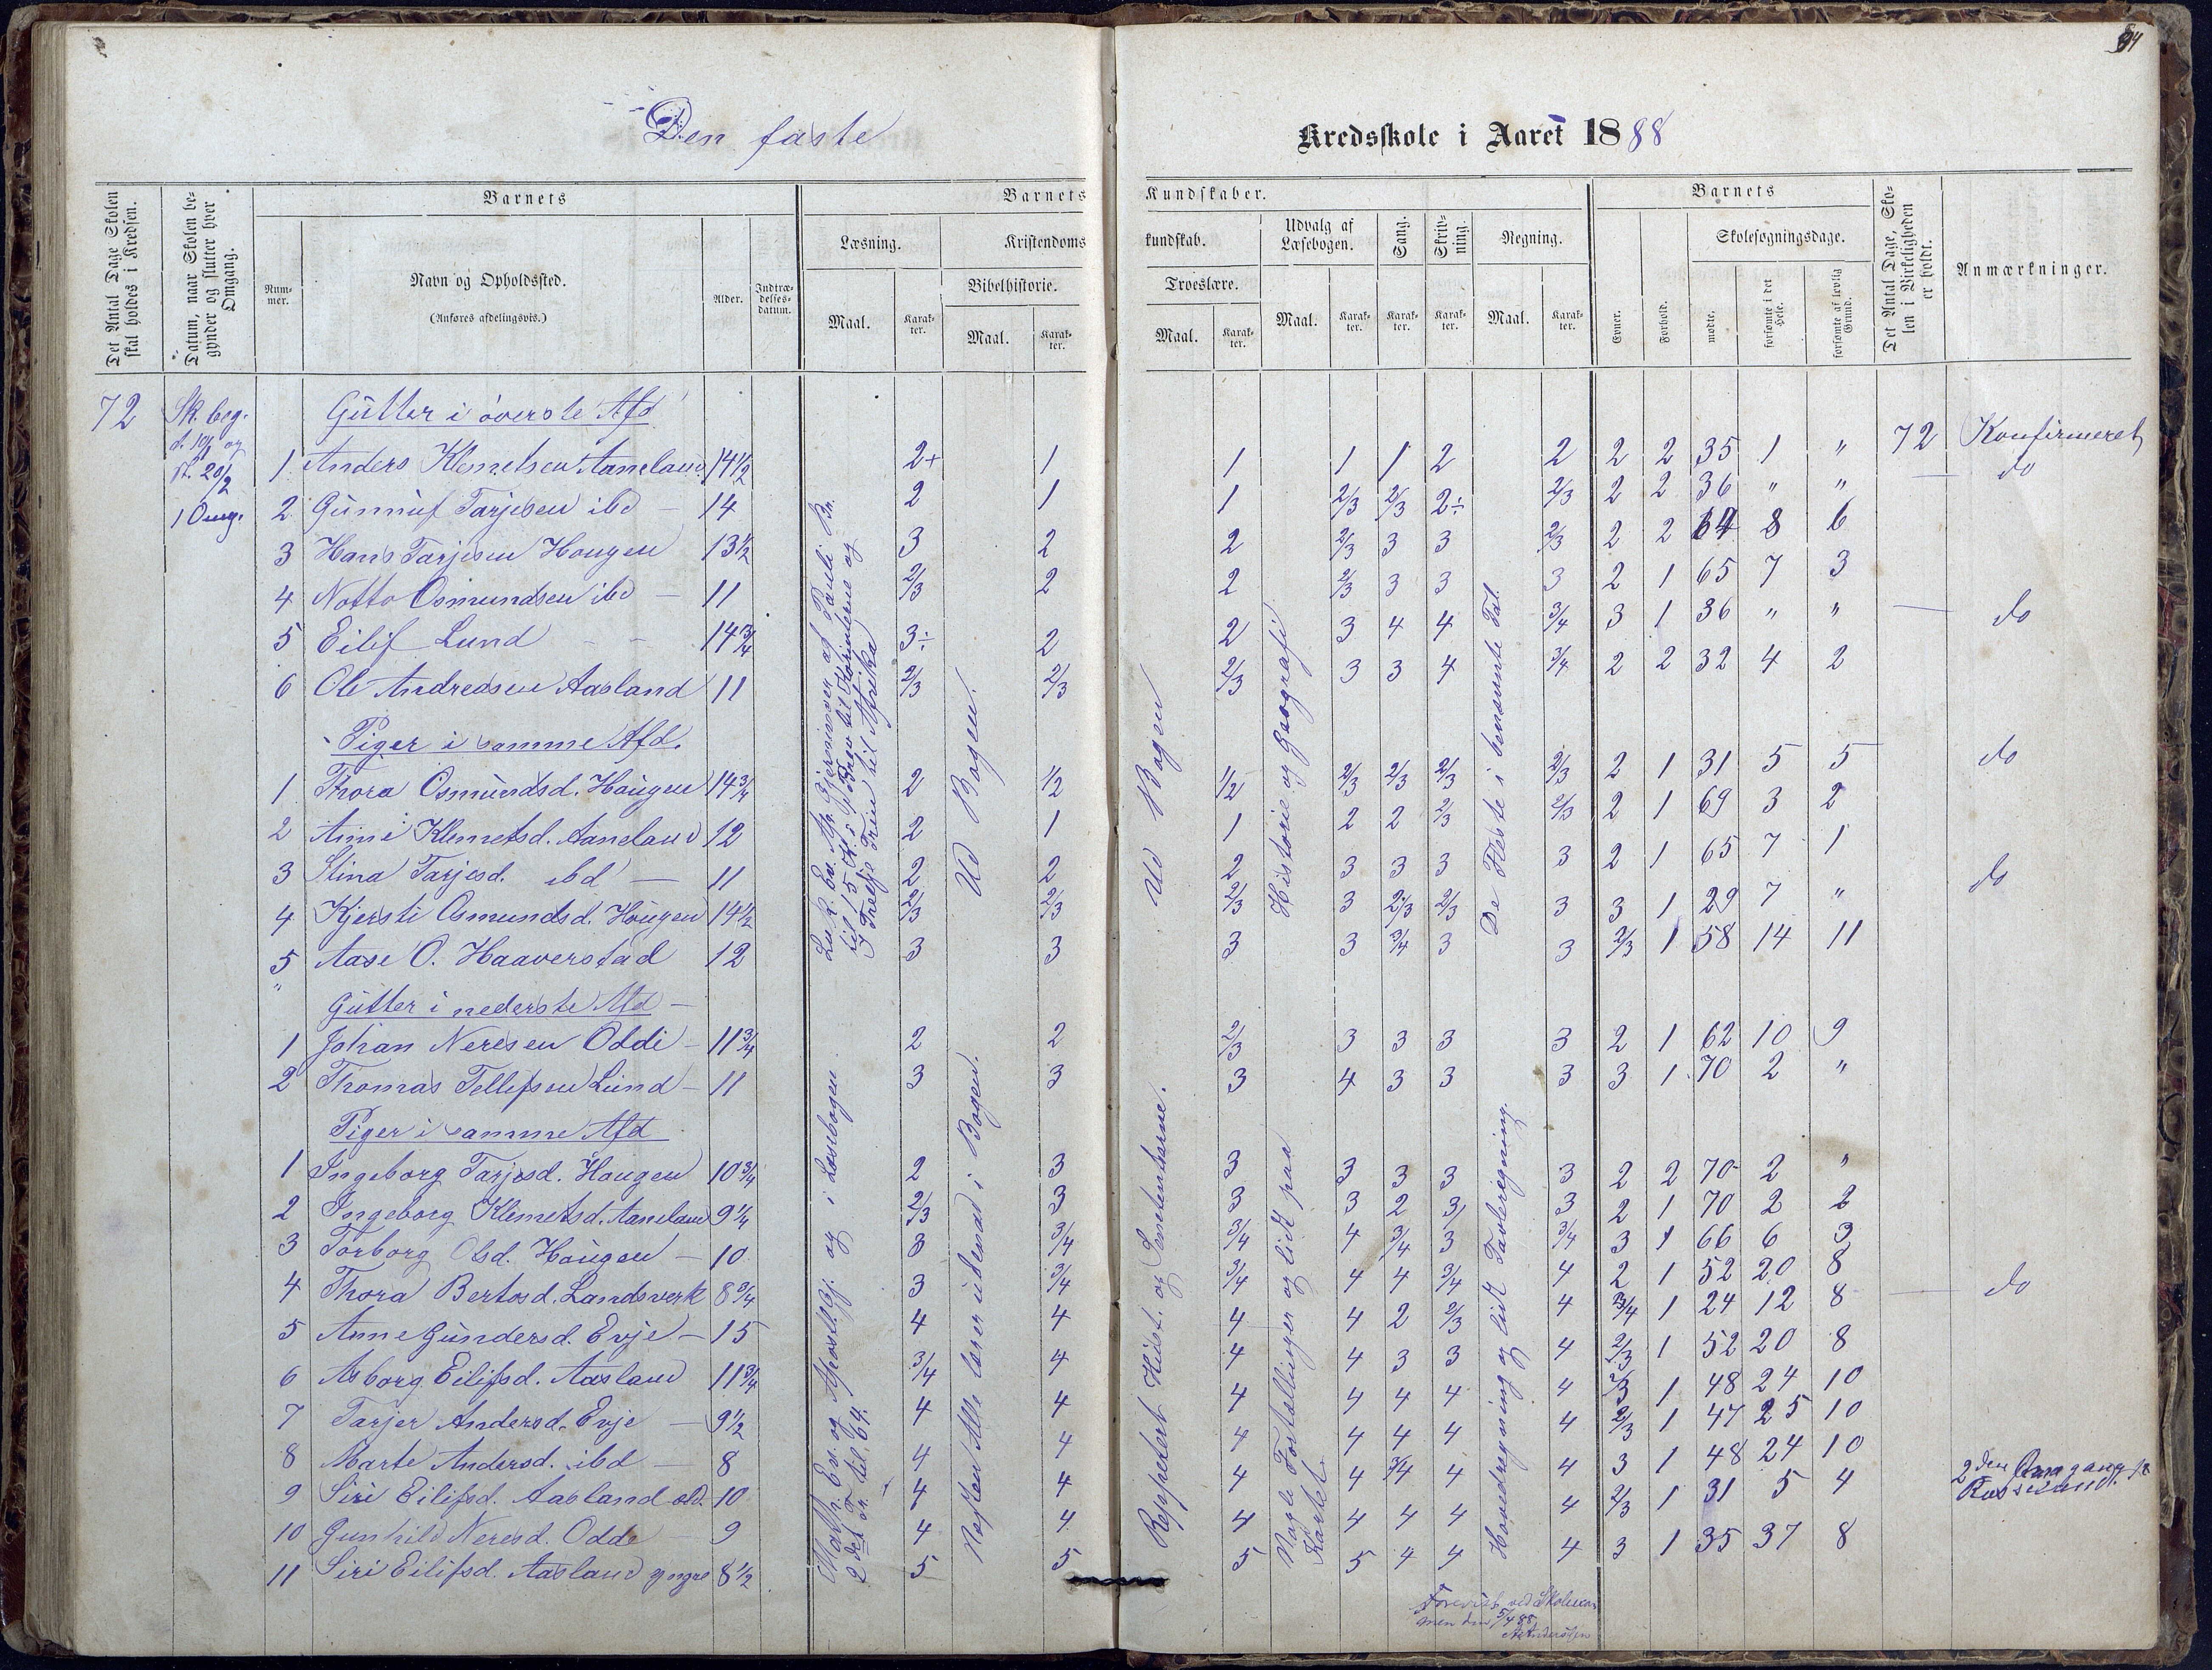 Den faste
Kredsskole i Aaret 1888
Det Antal Dage Skolen skal holdes i Kredsen.
Datum, naar Skolen begynder og slutter hver Omgang.
Barnets
Nummer.
Navn og Opholdssted.
(Anføres afdelingsvis.)
Alder.
Indtrædelsesdatum.
Barnets Kundskaber.
Læsning.
Maal.
Karakter.
Kristendomskundskab.
Bibelhistorie.
Maal.
Karakter.
Troeslære.
Maal.
Karakter.
Udvalg af Læsebogen.
Maal.
Karakter.
Sang.
Karakter.
Skrivning.
Karakter.
Regning.
Maal.
Karakter.
Barnets
Evner.
Forhold.
Skolesøgningsdage.
mødte.
forsømte i det Hele.
forsømte af lovlig Grund.
Det Antal Dage, Skolen i Virkeligheden er holdt.
Anmærkninger.
72 Sk. beg. Gutter i øverste Afd
1 Anders Klemetsen Aaneland 14½ 2+ 1 1 1 1 2 2 2 2 35 1 " 72 Konfirmeret
1 Omg. 2 Gunnuf Tarjesen ibd 14 2 1 1 2/3 2/3 2÷ 2/3 2 2 36 " " — do
3 Hans Tarjesen Hougen 13½ 3 2 2 2/3 3 3 2/3 2 2 64 8 6
4 Notto Osmundsen ibd — 11 2/3 2 2 2/3 3 3 3 2 1 65 7 3
5 Eilif Lund 14¾ 3÷ 2 2 3 4 4 3/4 3 1 36 " " — do
6 Ole Andreasen Aasland 11 2/3 2/3 2/3 3 3 4 3/4 2 2 32 4 2
Piger i samme Afd.
1 Thora Osmundsd. Hougen 14¾ 2 1/2 1/2 2/3 2/3 2/3 2/3 2 1 31 5 5 do
2 Anne Klemetsd. Aaneland 12 2 1 1 2 2 2/3 2/3 2 1 69 3 2
3 Stina Tarjesd. ibd — 11 2 2 2 3 3 3 3 2 1 65 7 1
4 Kjersti Osmundsd. Hougen 14½ 2/3 2/3 2/3 3 2/3 2/3 3 3 1 29 7 " do
5 Aase O. Haaverstad 12 3 3 3 3 3/4 3 3 2/3 1 58 14 11
Gutter i nederste Afd —
1 Johan Neresen Oddi — 11¾ 2 2 2/3 3 3 3 3 2 1 62 10 9
2 Thomas Tellefsen Lund — 11 3 3 3 4 3 3 3 3 1 70 2 "
Piger i samme Afd
1 Ingeborg Tarjesd. Hougen 10¾ 2 3 3 3 3 3 3 2 2 70 2 "
2 Ingeborg Klemetsd. Aaneland 9¼ 2/3 3 3 3 2 3 3 2 1 70 2 2
3 Torborg Olsd. Hougen — 10 3 3/4 3/4 4 3/4 3 3/4 3 1 66 6 3
4 Thora Bertosd. Landsverk 8¾ 3 3/4 3/4 4 4 3/4 4 2 1 52 20 8
5 Anne Gundersd. Evje — 15 4 4 4 4 2 2/3 4 3/4 1 24 12 8 — do
6 Asborg Eilifsd. Aasland 11¾ 3/4 4 4 4 3 3 4 2/3 1 52 20 8
7 Tarjer Andersd. Evje — 9½ 4 4 4 4 4 4 4 2/3 1 48 24 10
8 Marte Andersd. ibd — 8 4 4 4 4 4 4 4 2/3 1 47 25 10
9 Siri Eilifsd. Aasland æld. 10 4 4 4 4 3/4 4 4 3 1 48 24 10
10 Gunhild Neresd. Odde — 9 4 4 4 4 4 4 4 2/3 1 31 5 4 2den Omgang
11 Siri Eilifsd. Aasland yngre 8½ 5 5 5 5 4 4 4 3 1 35 37 8
til Afrika
Ud Bogen.
Ud Bogen
Historie og Geografi
De Fleste i benævnte Tal.
og i Læsebogen
Næsten Alle læser udenad i Bogen.
Reppetert Hist. og
Nogle Fortællinger og lidt paa Kartet.
Hovedregning og lidt Tavleregning.
Forevist ved Skoleexamen den 5/4 88